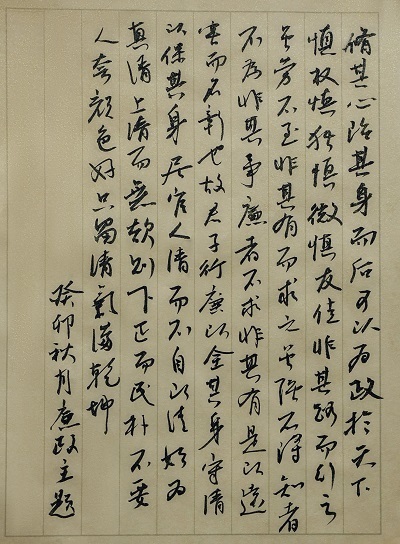 脩其心治其身而后可以为政於天下
慎权慎独慎微慎友非其路而行之
虽劳不至非其有而求之虽强不得知者
不为非其事廉者不求非其有是以远
害而名彰也故君子行廉以全其身守清
以保其身居官人清而不自以清始为
真清上清而无欲则下正而民朴不要
人夸颜色好只留清氣满乾坤
癸卯秋月廉政主题